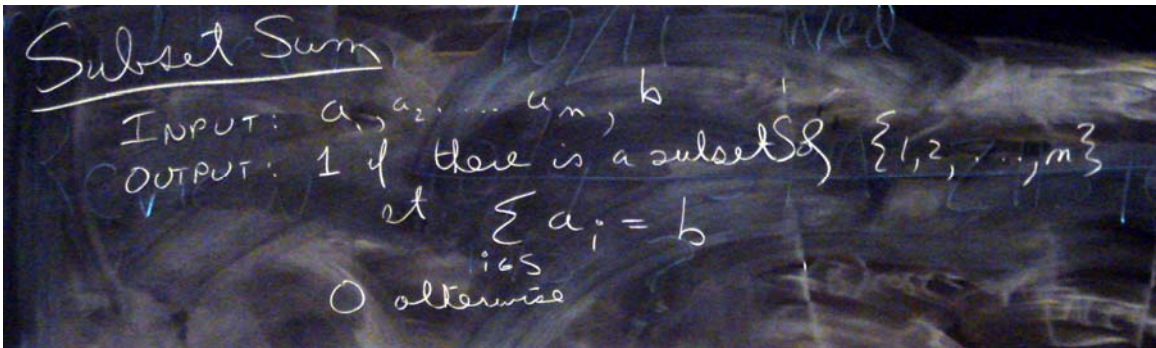 Subset Sum
INPUT: a₁, a₂, .... aₙ, b
OUTPUT: 1 if there is a subset S of {1, 2, ...., n}
st ∑ aᵢ = b
i∈S
0 otherwise